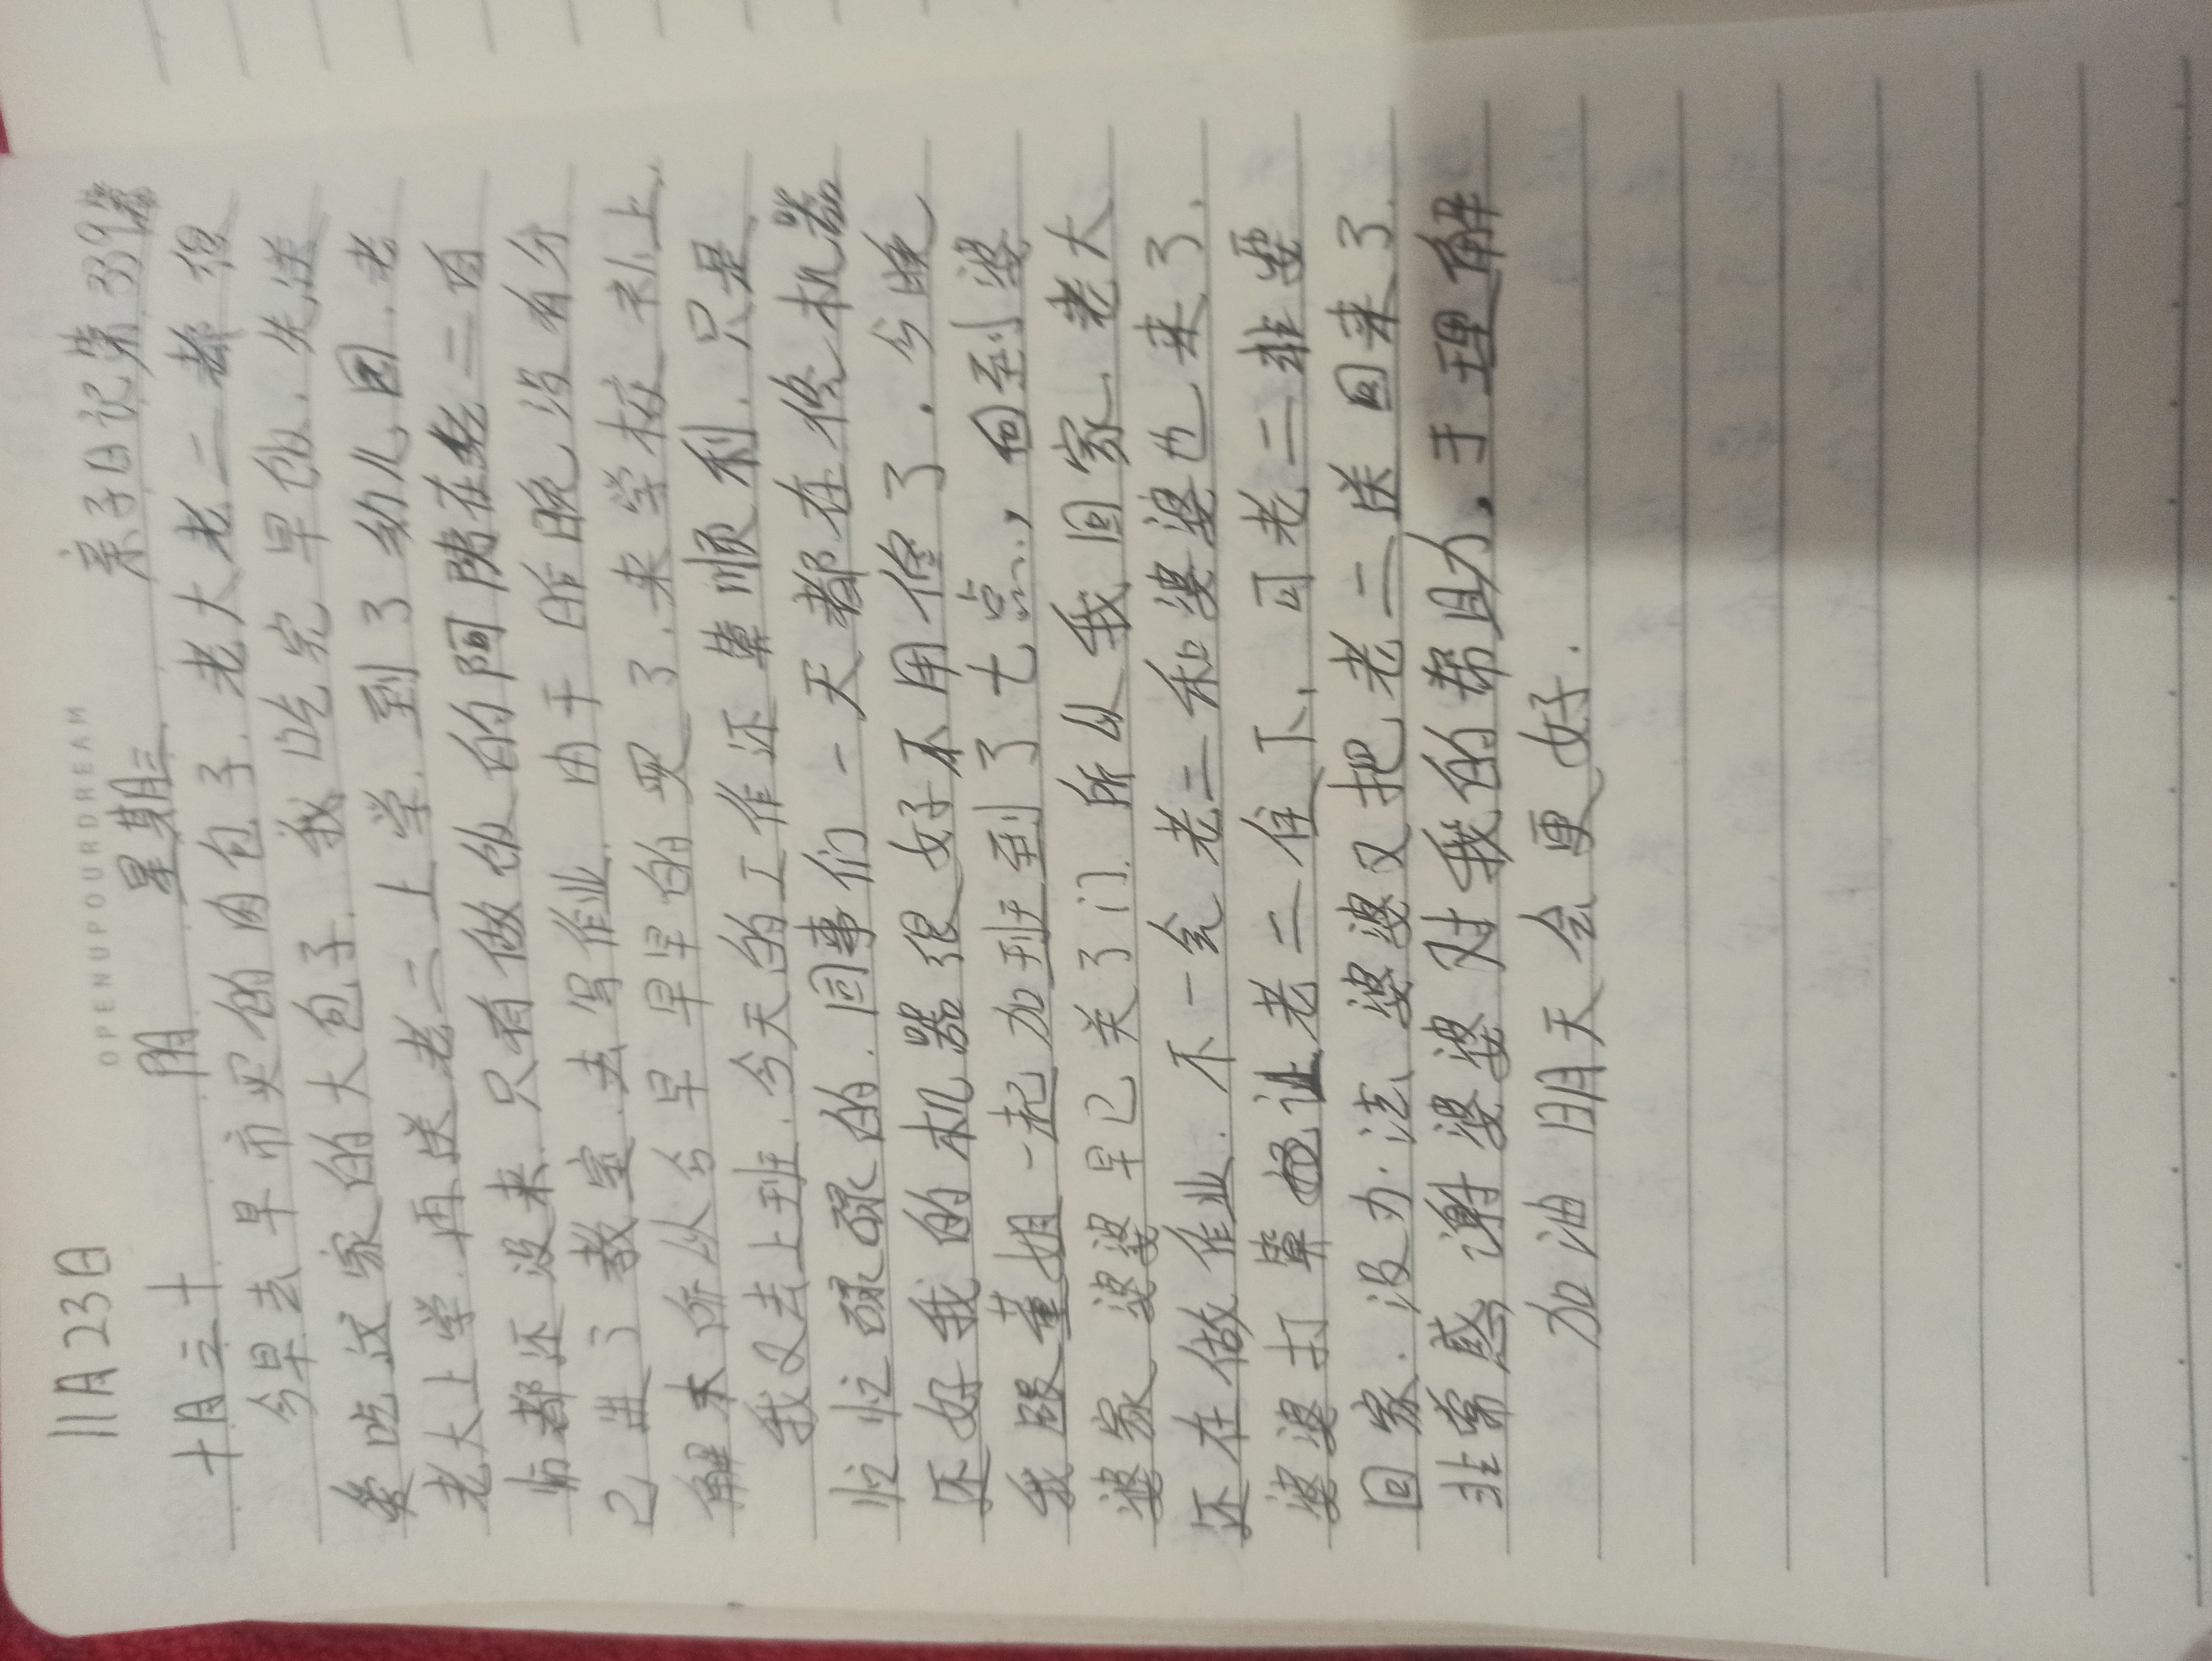 OPENUPOURDREAM
11月23日
十月三十 阴 星期三 亲子日记第339篇
今早去早市买的肉包子.老大老二都很
爱吃这家的大包子.我吃完早饭.先送
老大上学.再送老二上学.到了幼儿园.老
师都还没来.只有做饭的阿姨在.老二自
己进了教室.去写作业.由于昨晚没有分
解木 所以今早早早的哭了.来学校补上.
我又去上班.今天的工作还算顺利.只是
忙忙碌碌的.同事们一天都在修机器
还好我的机器很好不用修了.今晚
我跟董姐一起加班到了七点,回到婆
婆家婆婆早已关了门.所以我回家.老大
还在做作业.不一会老二和婆婆也来了.
婆婆打算 让老二住下.可老二非要
回家.没办法婆婆又把老二送回来了.
非常感谢婆婆对我的帮助.于理解
加油明天会更好.